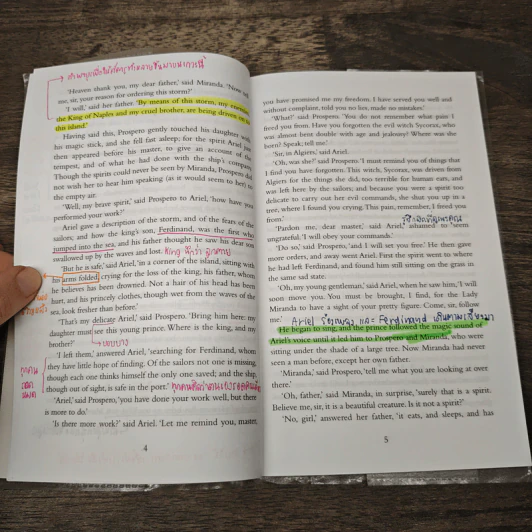 'Heaven thank you, my dear father,' said Miranda. 'Now tell
me, sir, your reason for ordering this storm?'
'I will,' said her father. 'By means of this storm, my enemies,
the King of Naples and my cruel brother, are being driven on to
this island.'
Having said this, Prospero gently touched his daughter with
his magic stick, and she fell fast asleep; for the spirit Ariel just
then appeared before his master, to give an account of the
tempest, and of what he had done with the ship's company.
Though the spirits could never be seen by Miranda, Prospero did
not wish her to hear him speaking (as it would seem to her) to
the empty air.
'Well, my brave spirit,' said Prospero to Ariel, 'how have you
performed your work?'
Ariel gave a description of the storm, and of the fears of the
sailors; and how the king's son, Ferdinand, was the first who
jumped into the sea; and his father thought he saw his dear son
swallowed up by the waves and lost.
'But he is safe,' said Ariel, 'in a corner of the island, sitting with
his arms folded, crying for the loss of the king, his father, whom
he believes has been drowned. Not a hair of his head has been
hurt, and his princely clothes, though wet from the waves of the
sea, look fresher than before.'
'That's my delicate Ariel,' said Prospero. 'Bring him here: my
daughter must see this young prince. Where is the king, and my
brother?'
'I left them,' answered Ariel, 'searching for Ferdinand, whom
they have little hope of finding. Of the sailors not one is missing,
though each one thinks himself the only one saved; and the ship,
though out of sight, is safe in the port.'
'Ariel,' said Prospero, 'you have done your work well, but there
is more to do.'
'Is there more work?' said Ariel. 'Let me remind you, master,
4
you have promised me my freedom. I have served you well and
without complaint, told you no lies, made no mistakes.'
'What?' said Prospero. 'You do not remember what pain I
freed you from. Have you forgotten the evil witch Sycorax, who
was almost bent double with age and jealousy? Where was she
born? Speak; tell me.'
'Sir, in Algiers,' said Ariel.
'Oh, was she?' said Prospero. 'I must remind you of things that
I find you have forgotten. This witch, Sycorax, was driven from
Algiers for the things she did, too terrible for human ears, and
was left here by the sailors; and because you were a spirit too
delicate to carry out her evil commands, she shut you up in a
tree, where I found you crying. This pain, remember, I freed you
from.'
'Pardon me, dear master,' said Ariel, ashamed to seem
ungrateful. 'I will obey your commands.'
'Do so,' said Prospero, 'and I will set you free.' He then gave
more orders, and away went Ariel. First the spirit went to where
he had left Ferdinand, and found him still sitting on the grass in
the same sad state.
'Oh, my young gentleman,' said Ariel, when he saw him, 'I will
soon move you. You must be brought, I find, for the Lady
Miranda to have a sight of your pretty figure. Come, sir, follow
me.' Ariel ร้องเพลง และ Ferdinand เดินตามเสียงมา
He began to sing, and the prince followed the magic sound of
Ariel's voice until it led him to Prospero and Miranda, who were
sitting under the shade of a large tree. Now Miranda had never
seen a man before, except her own father.
'Miranda,' said Prospero, 'tell me what you are looking at over
there.'
'Oh, father,' said Miranda, in surprise, 'surely that is a spirit.
Believe me, sir, it is a beautiful creature. Is it not a spirit?'
'No, girl,' answered her father, 'it eats, and sleeps, and has
5